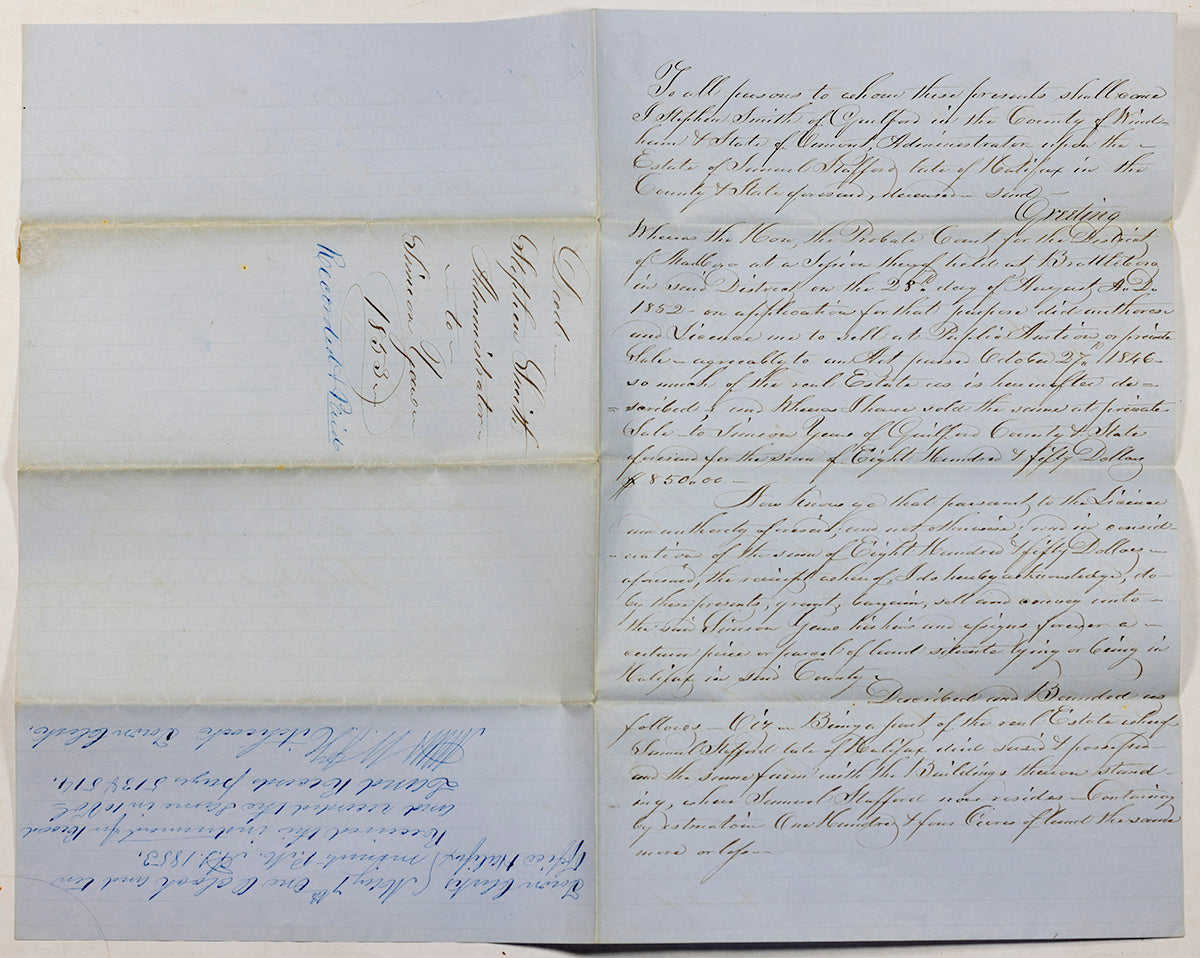 To all persons to whom these presents shall come
I Stephen Smith of Guilford in the County of Wind-
ham & State of Vermont, Administrator upon the
Estate of Samuel Stafford late of Halifax in the
County & State aforesaid, deceased - send -
Greeting
Whereas the Hon. the Probate Court for the District
of Marlboro at a Session thereof held at Brattleboro
in said District on the 28th day of August A.D.
1852 - on application for that purpose did authorise
and Licence me to sell at Puplic Auction or private
Sale - agreeably to an Act passed October 27th 1846 -
so much of the real Estate as is hereinafter de-
=scribed; and Whereas I have sold the same at private
Sale - to Simeon Yeaw of Guilford County & State
aforesaid for the sum of Eight Hundred & fifty Dollars
$850.00 -
Now Know ye that pursuant to the Licence
and authority aforesaid, and not otherwise; and in consid-
-eration of the sum of Eight Hundred & fifty Dollars -
aforesaid, the receipt whereof, I do hereby acknowledge, do -
by these presents, grant, bargain, sell and convey unto -
the said Simeon Yeaw his heirs and assigns forever a -
certain piece or parcel of land situate lying or being in
Halifax in said County -
Described and Bounded as
follows - Viz - Being a part of the real Estate whereof
Samuel Stafford late of Halifax died seized & possessed
and the same farm with the Buildings thereon stand-
ing, where Samuel Stafford now resides - Containing
by estimation One Hundred & four Acres of land the same
more or less -
Deed -
Stephen Smith
Administrator
- to -
Simeon Yeaw
1853
Recorded & Paid
Town Clerks Office Halifax } May 7th One O clock and ten
minuts P.M. A.D. 1853.
Received this instrument for Record
and recorded the same in 10 Vol
Land Records pages 513 & 514.
Hitchcock Town Clerk.